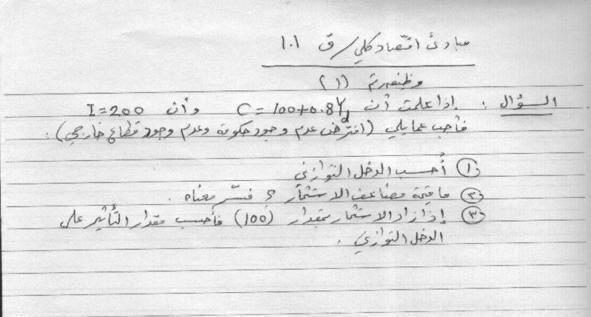 مبادئ اقتصاد كلي / ق ١٠١
وظيفة رقم (١)
السؤال : إذا علمت أن C = 100 + 0.8Yd وأن I = 200
فأجب عما يلي (افترض عدم وجود حكومة وعدم وجود قطاع خارجي) :
① أحسب الدخل التوازني
② ما قيمة مضاعف الاستثمار ؟ فسّر معناه .
③ إذا زاد الاستثمار بمقدار (100) فأحسب مقدار التأثير على
الدخل التوازني .